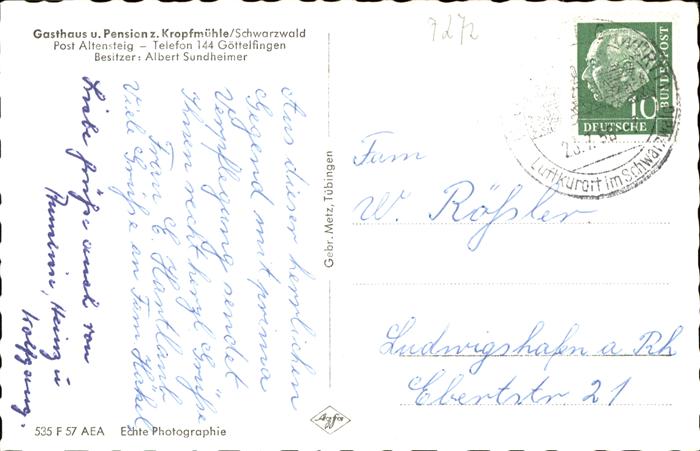 Gasthaus u. Pension z. Kropfmühle/Schwarzwald
Post Altensteig – Telefon 144 Göttelfingen
Besitzer: Albert Sundheimer
Aus dieser herrlichen
Gegend mit prima
Verpflegung sendet
Ihnen recht herzl. Grüße
Fram E. Hantlaub
Viele Grüße an Fam Hakel
Liebe Grüße auch von
Heinz u
Wolfgang.
535 F 57 AEA Echte Photographie
Gebr. Metz, Tübingen
Agfa
7272
10
DEUTSCHE
BUNDESPOST
Luftkurort im Schwarzwald
Fam
W. Rößler
Ludwigshafen a Rh
Ebertstr 21